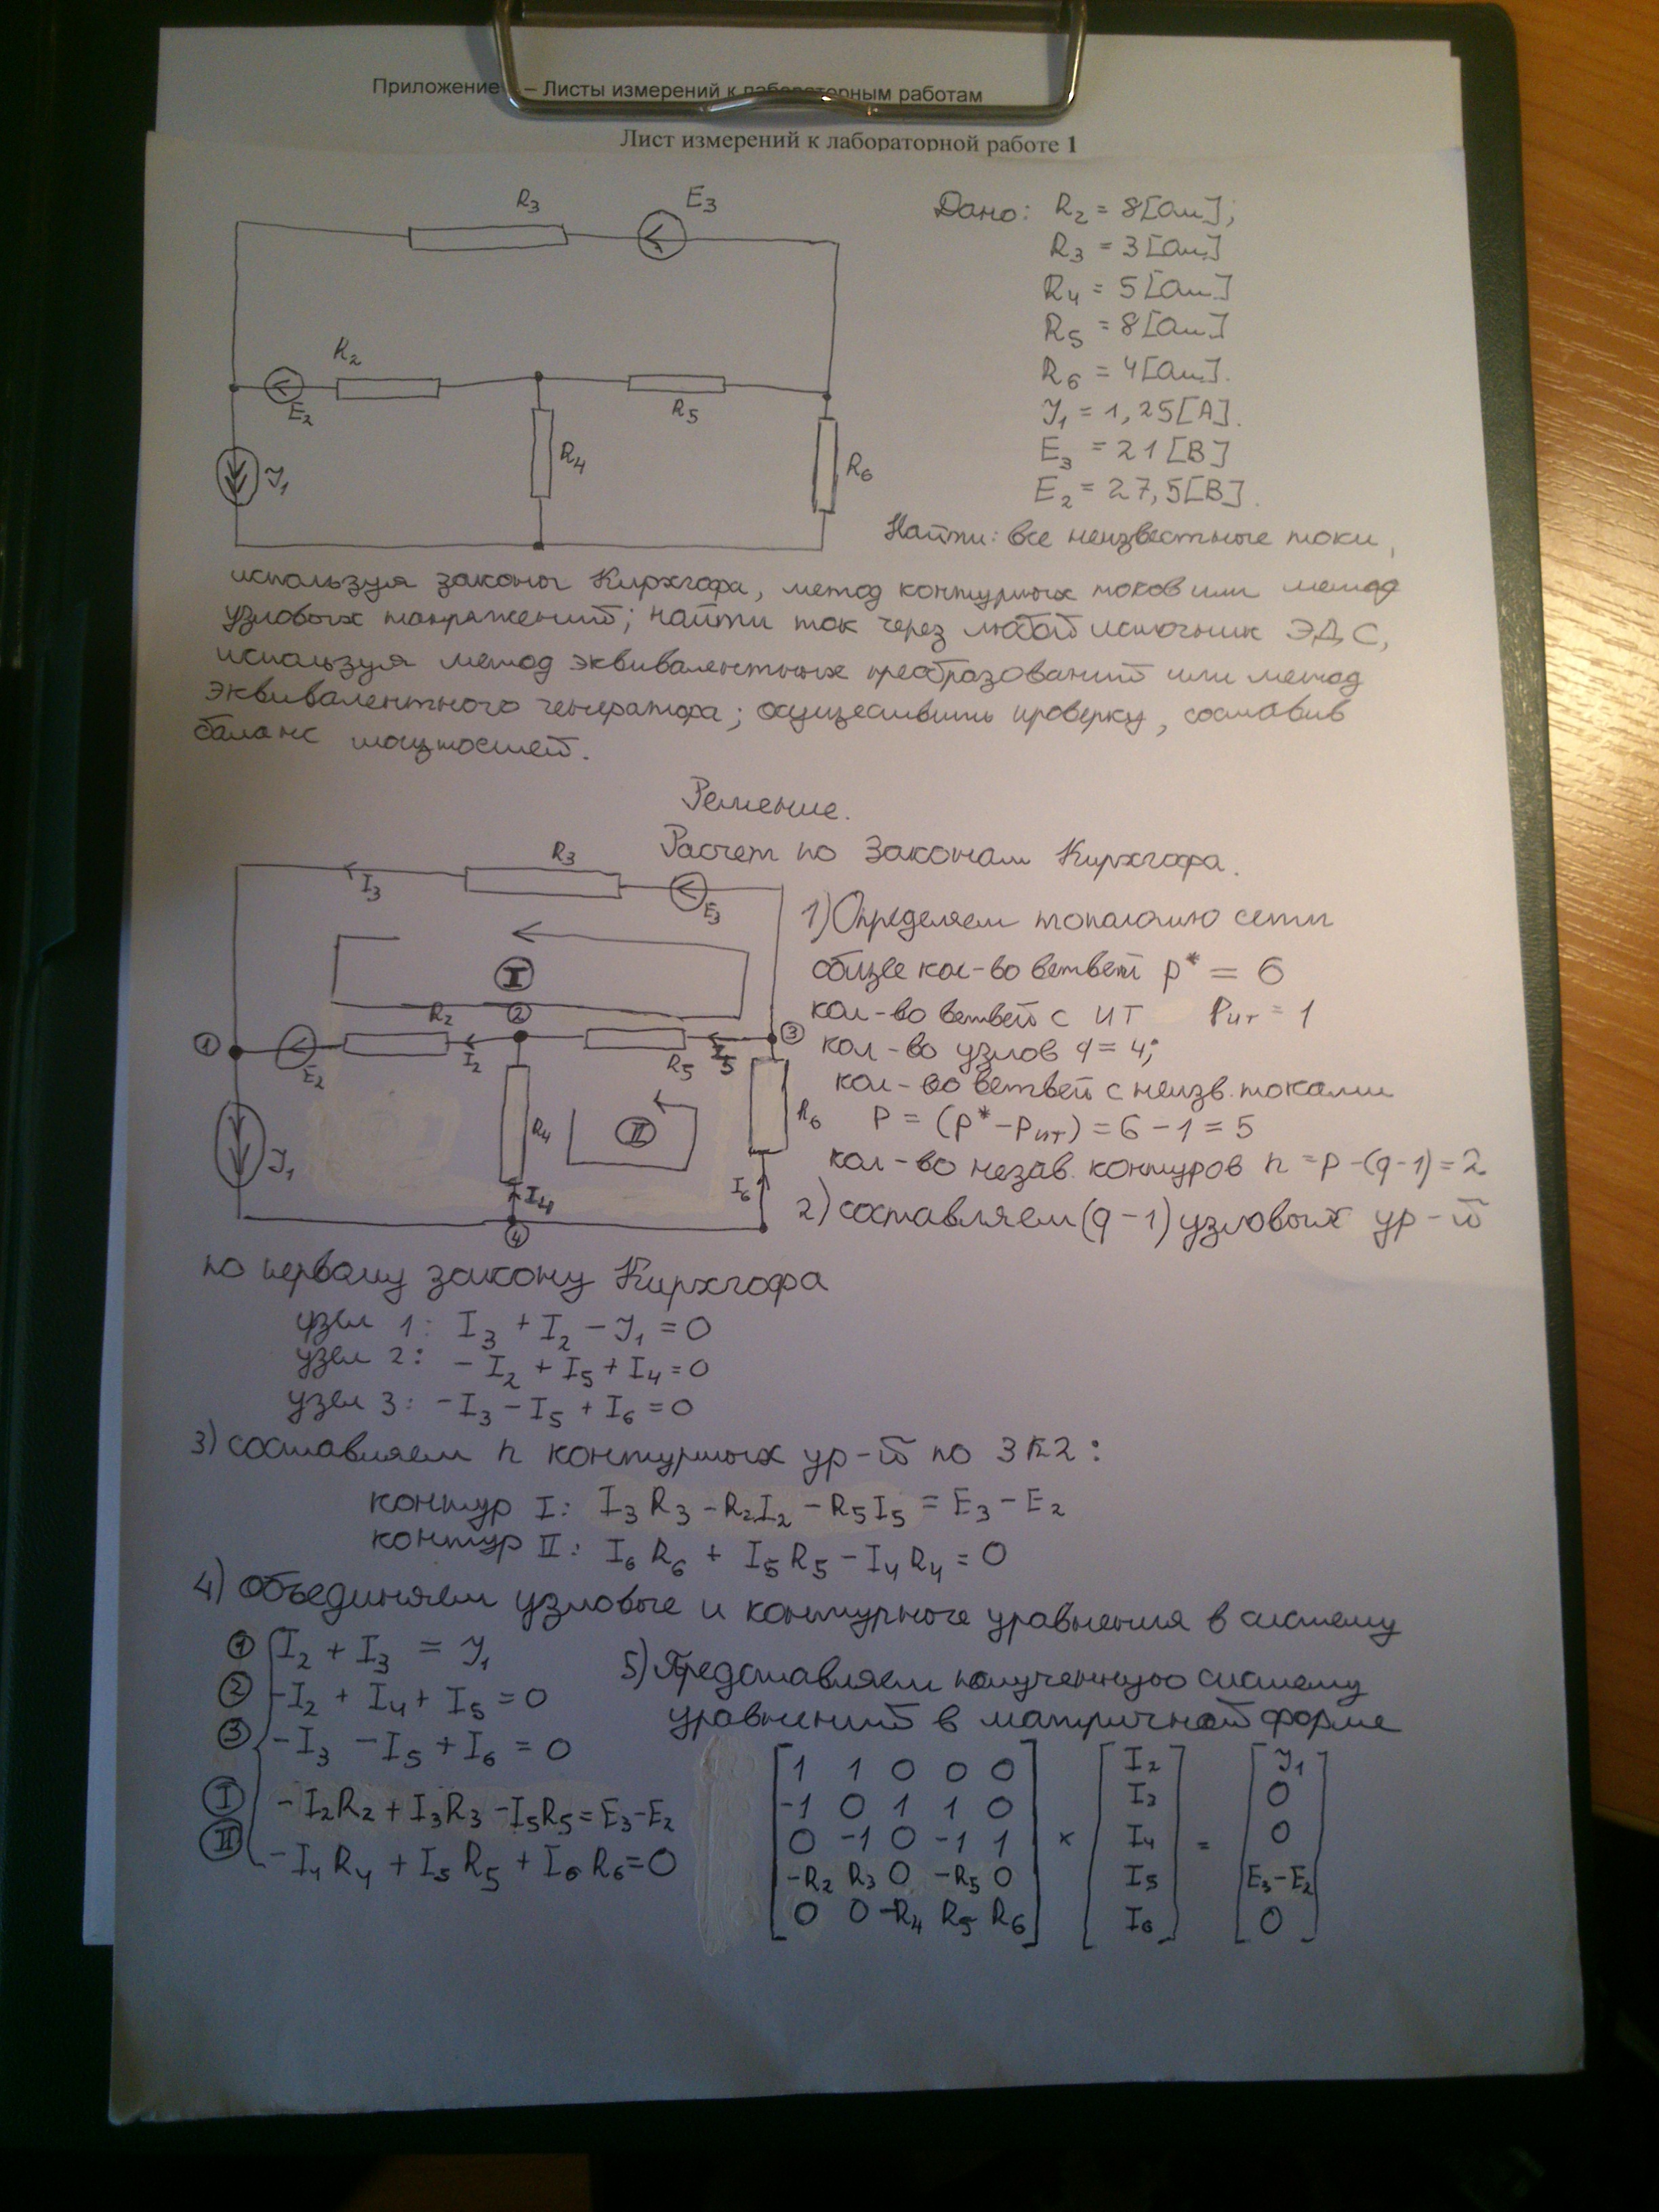 Приложение – Листы измерений к лабораторным работам
Лист измерений к лабораторной работе 1
R3 E3
R2 E2 R5
R4 R6 J1
Дано: R2 = 8[Ом];
R3 = 3[Ом]
R4 = 5[Ом]
R5 = 8[Ом]
R6 = 4[Ом].
J1 = 1,25[А].
E3 = 21[В]
E2 = 27,5[В].
Найти: все неизвестные токи,
используя законы Кирхгофа, метод контурных токов или метод
узловых напряжений; найти ток через любой источник ЭДС,
используя метод эквивалентных преобразований или метод
эквивалентного генератора; осуществить проверку, составив
баланс мощностей.
Решение.
Расчет по законам Кирхгофа.
I3 R3 E3
I
1 E2 R2 I2 2 R5 I5 3
J1 R4 II R6
I4 I6
4
1) Определяем топологию сети
общее кол-во ветвей p* = 6
кол-во ветвей с ИТ Pит = 1
кол-во узлов q = 4;
кол-во ветвей с неизв. токами
P = (p* - Pит) = 6 - 1 = 5
кол-во незав. контуров n = p - (q - 1) = 2
2) составляем (q - 1) узловых ур-й
по первому закону Кирхгофа
узел 1: I3 + I2 - J1 = 0
узел 2: - I2 + I5 + I4 = 0
узел 3: - I3 - I5 + I6 = 0
3) составляем n контурных ур-й по ЗК2:
контур I: I3 R3 - R2 I2 - R5 I5 = E3 - E2
контур II: I6 R6 + I5 R5 - I4 R4 = 0
4) Объединяем узловые и контурные уравнения в систему
1 I2 + I3 = J1
2 -I2 + I4 + I5 = 0
3 -I3 - I5 + I6 = 0
I -I2R2 + I3R3 - I5R5 = E3 - E2
II -I4 R4 + I5 R5 + I6 R6 = 0
5) Представляем полученную систему
уравнений в матричной форме
1 1 0 0 0 I2 J1
-1 0 1 1 0 I3 0
0 -1 0 -1 1 × I4 = 0
-R2 R3 0 -R5 0 I5 E3-E2
0 0 -R4 R5 R6 I6 0